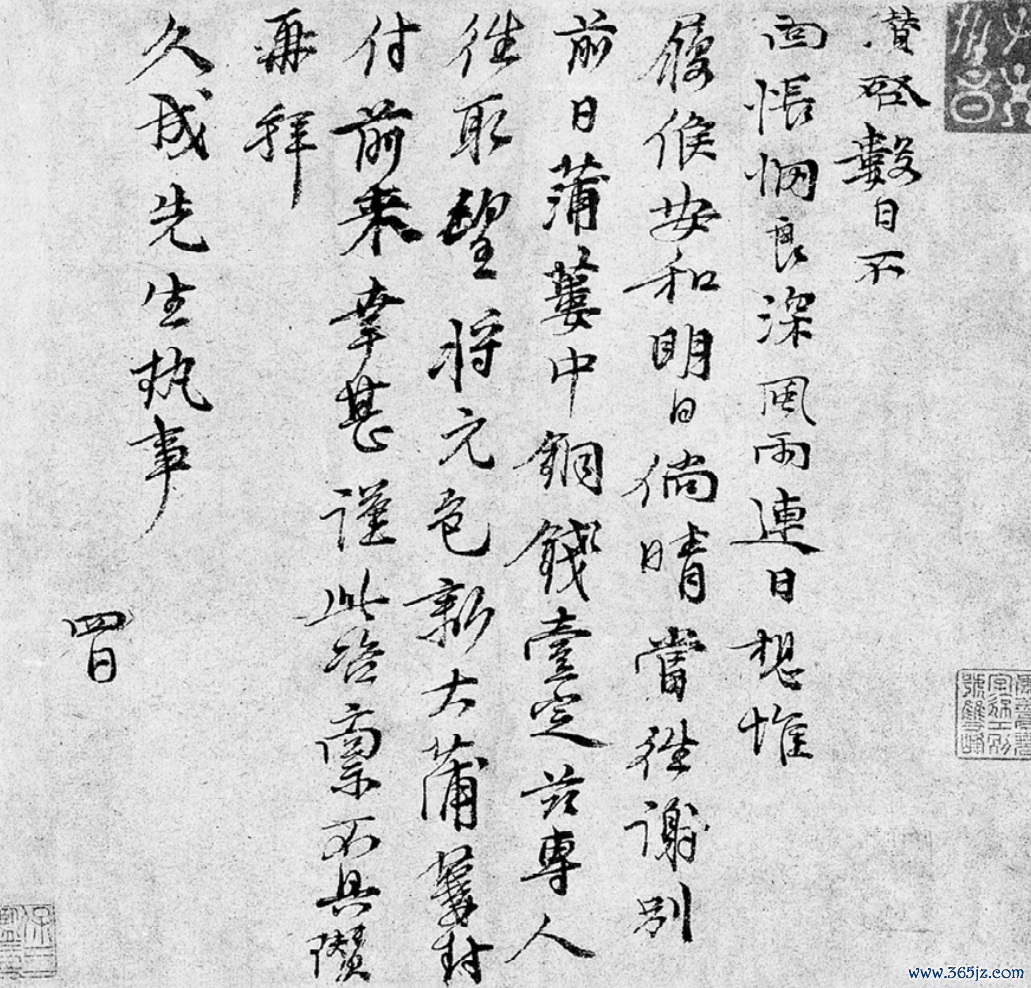 瓚啓數日不
面悵惘良深風雨連日想惟
履候安和明日倘晴當往謝別
前日蒲蔞中銅錢壹定茲專人
往取望將元新大蒲蔞封
付前来幸甚謹此咨稟不具瓚
再拜
久成先生執事
四日
www.365jz.com